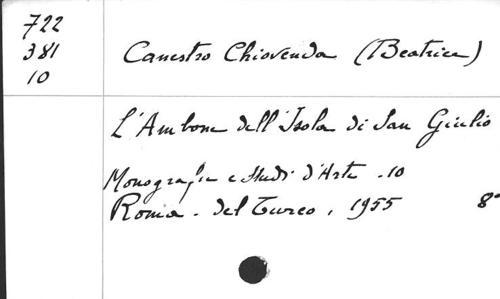 722
381
10
Canestro Chiovenda (Beatrice)
L'Ambone dell'Isola di San Giulio
Monografie e Studi d'Arte . 10
Roma . Del Turco , 1955 8°